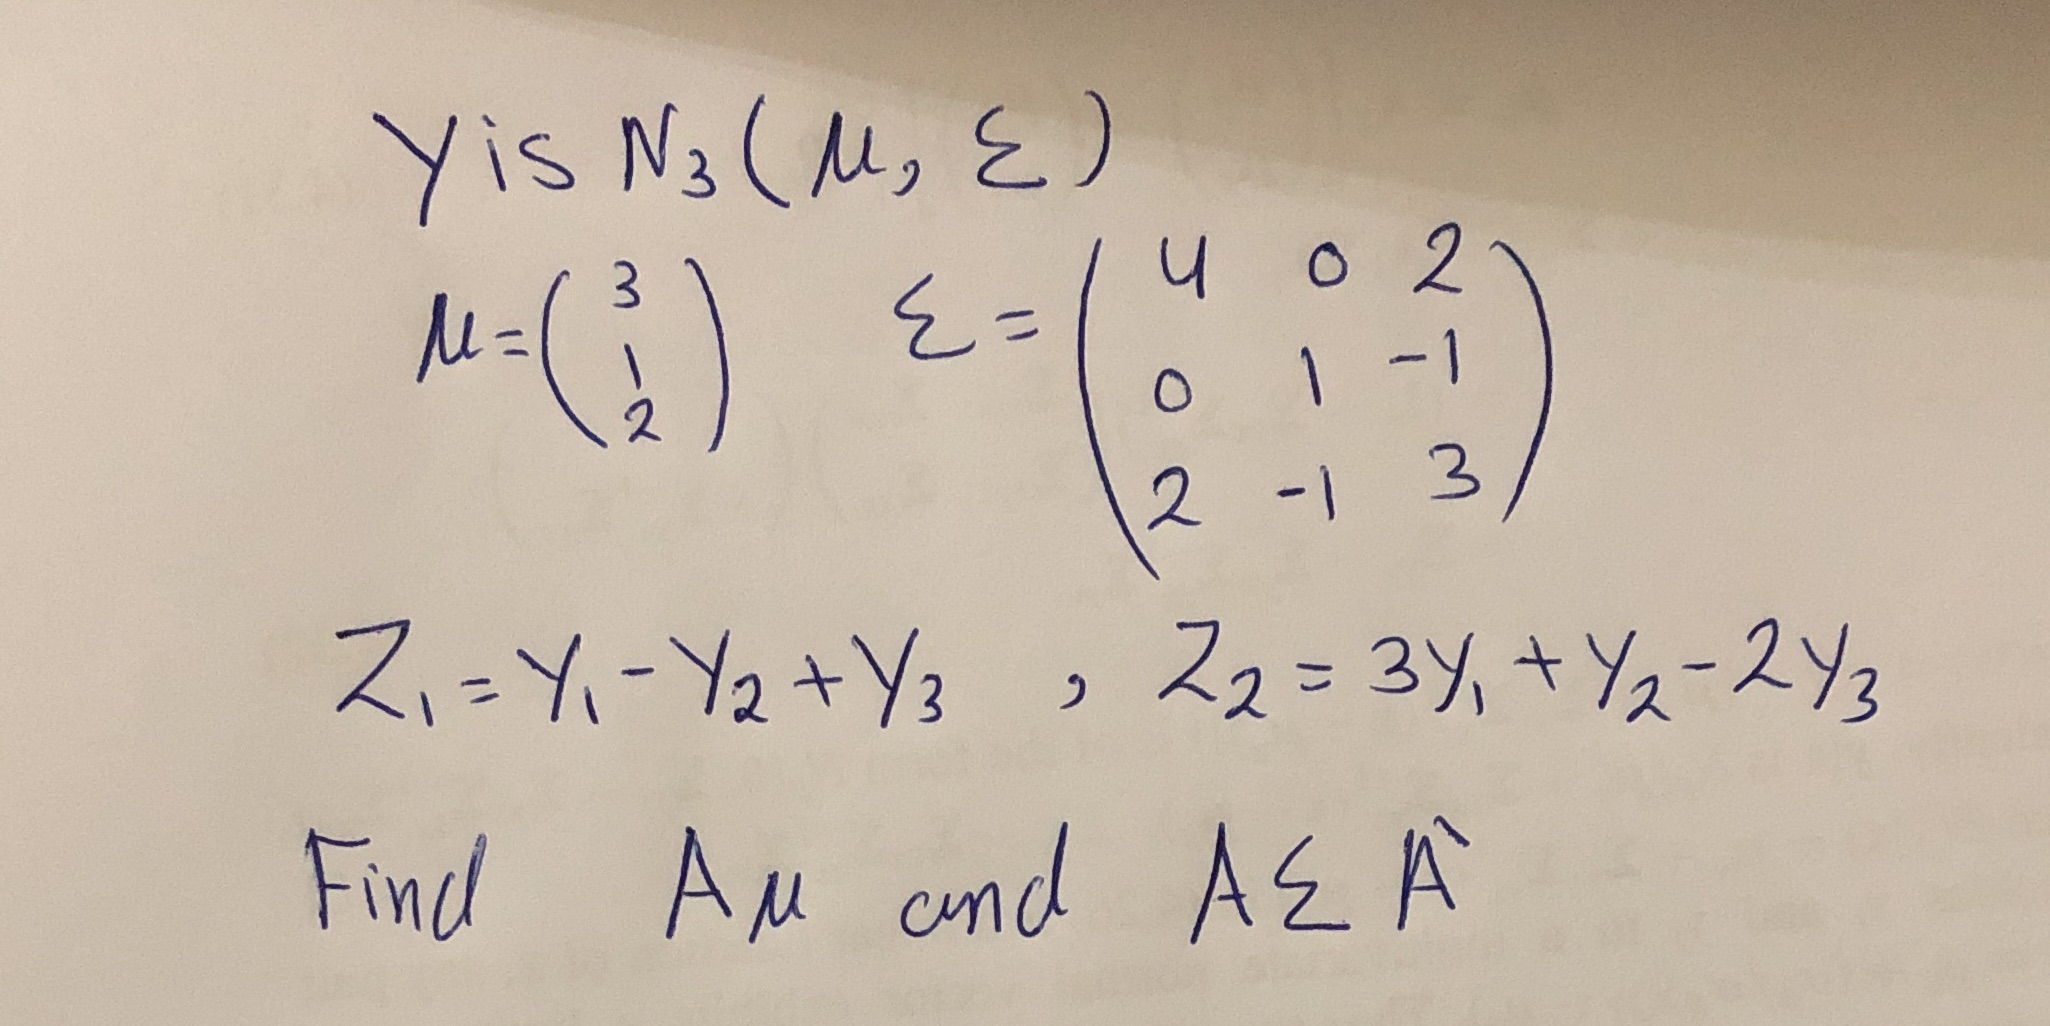 Y is N₃(μ, Σ)
μ = (3 1 2) Σ = (4 0 2
0 1 -1
2 -1 3)
Z₁ = Y₁ - Y₂ + Y₃ , Z₂ = 3Y₁ + Y₂ - 2Y₃
Find Aμ and AΣA`